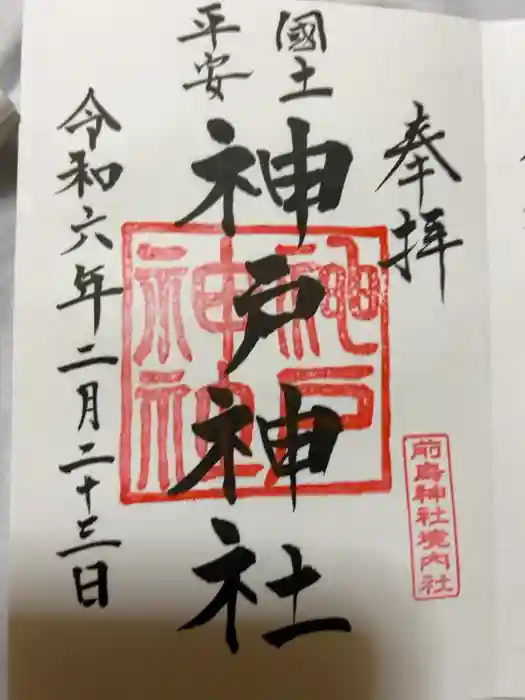 奉拝
前鳥神社境内社
國土
平安
神戸神社
神戸
神社
令和六年二月二十三日